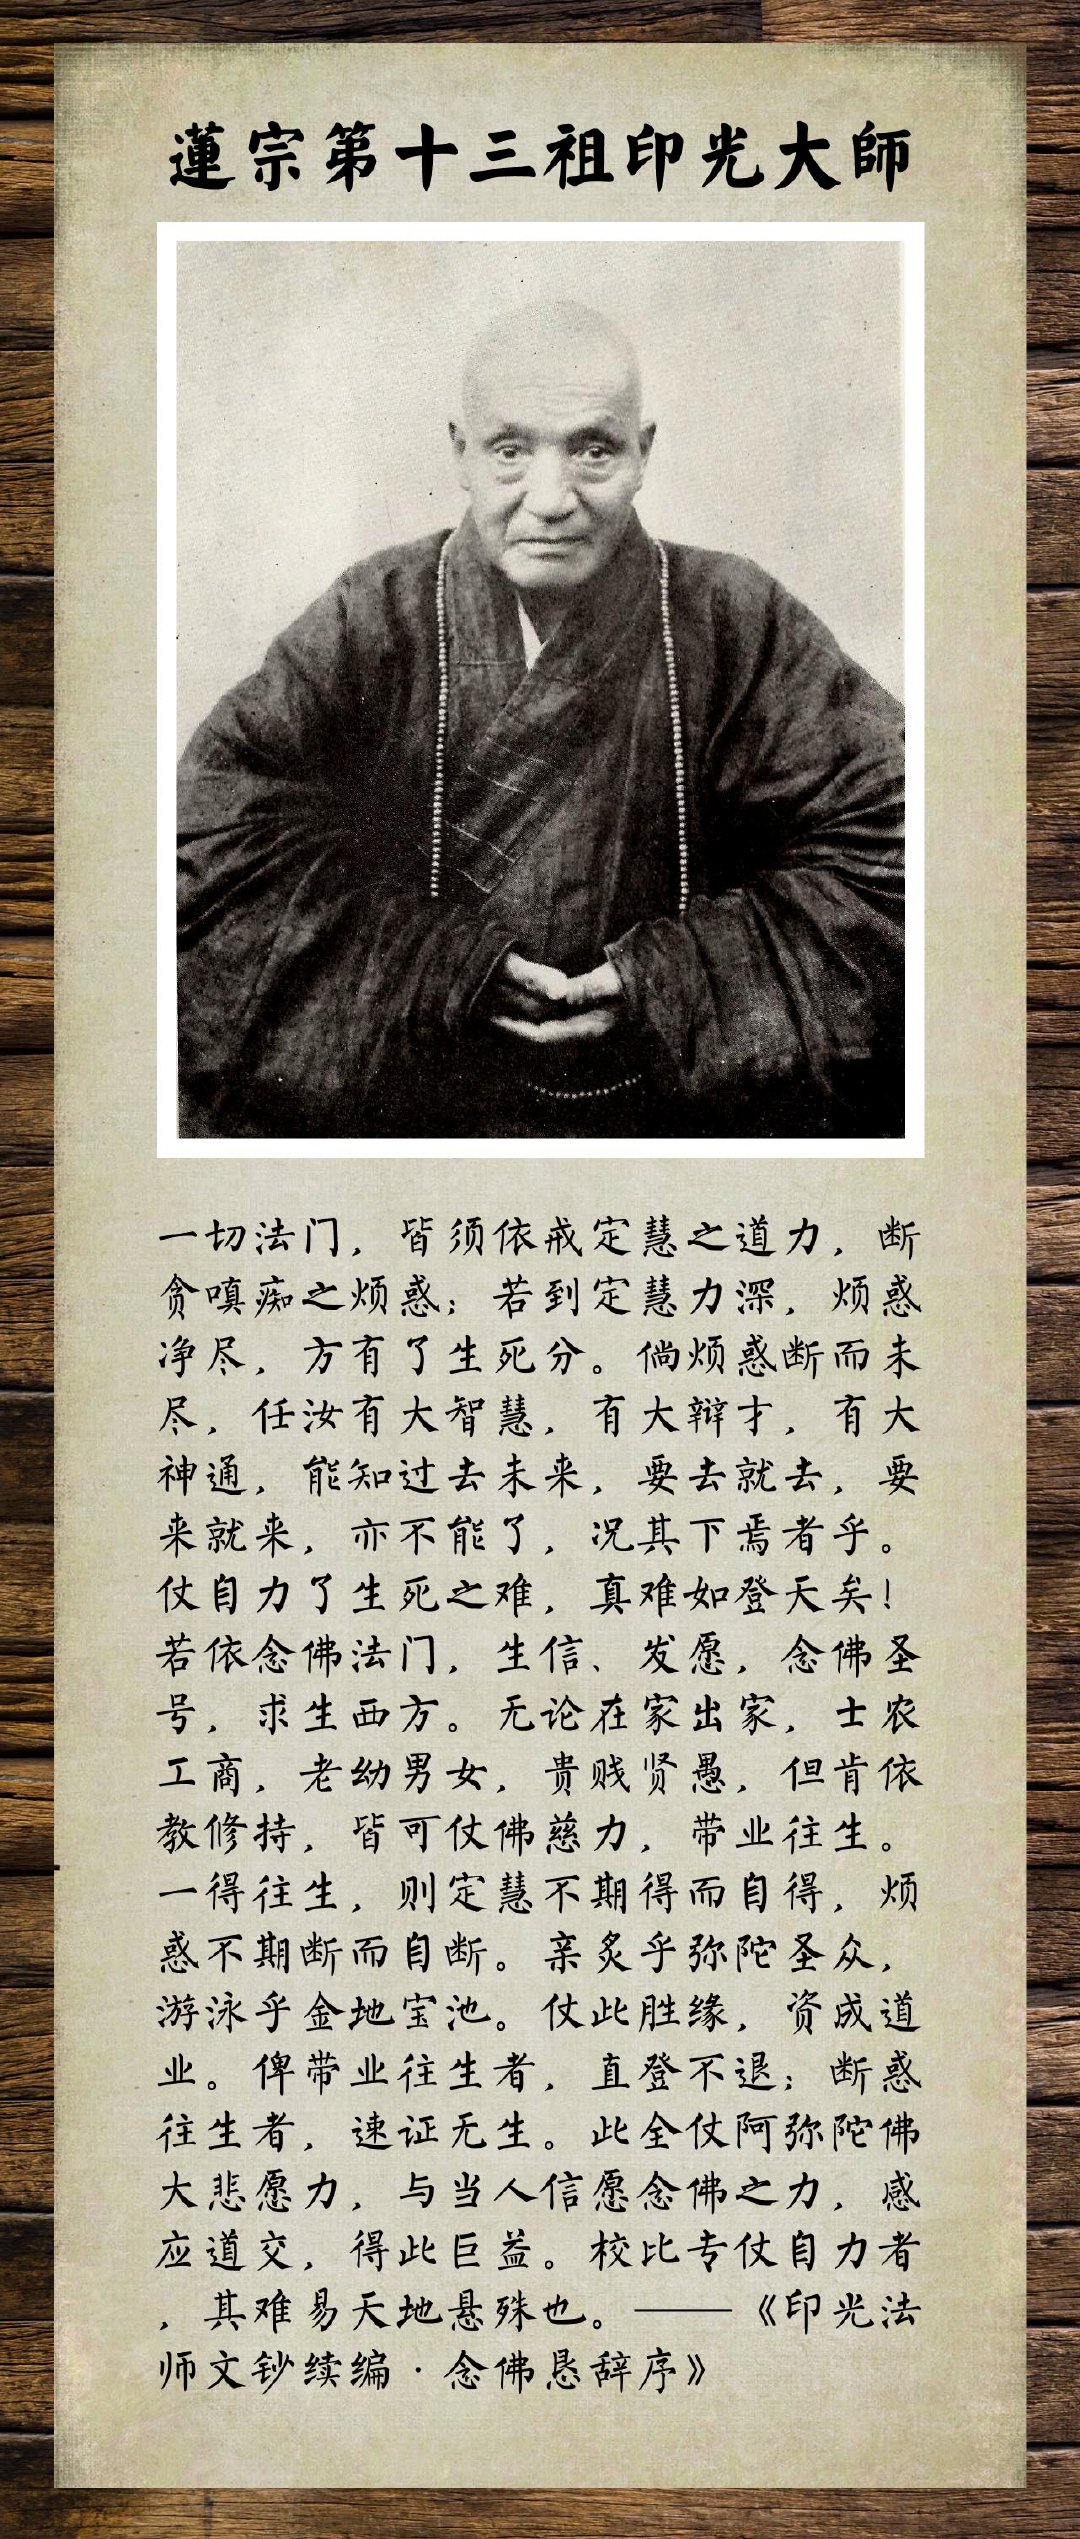 蓮宗第十三祖印光大師
一切法门，皆须依戒定慧之道力，断
贪嗔痴之烦惑；若到定慧力深，烦惑
净尽，方有了生死分。倘烦惑断而未
尽，任汝有大智慧，有大辩才，有大
神通，能知过去未来，要去就去，要
来就来，亦不能了，况其下焉者乎。
仗自力了生死之难，真难如登天矣！
若依念佛法门，生信、发愿，念佛圣
号，求生西方。无论在家出家，士农
工商，老幼男女，贵贱贤愚，但肯依
教修持，皆可仗佛慈力，带业往生。
一得往生，则定慧不期得而自得，烦
惑不期断而自断。亲炙乎弥陀圣众，
游泳乎金地宝池。仗此胜缘，资成道
业。俾带业往生者，直登不退；断惑
往生者，速证无生。此全仗阿弥陀佛
大悲愿力，与当人信愿念佛之力，感
应道交，得此巨益。校比专仗自力者
，其难易天地悬殊也。——《印光法
师文钞续编·念佛恳辞序》